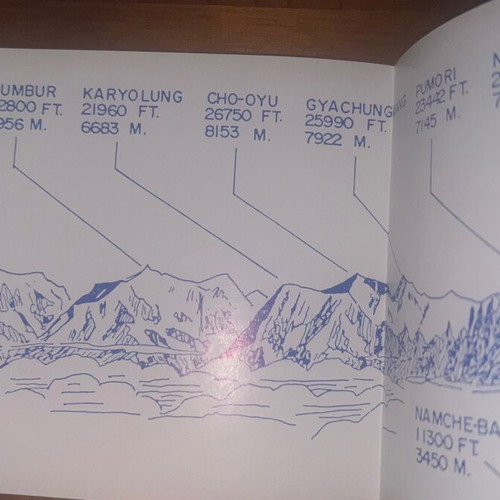 UMBUR
2800 FT.
956 M.
KARYOLUNG
21960 FT.
6683 M.
CHO-OYU
26750 FT.
8153 M.
GYACHUNG
25990 FT.
7922 M.
PUMORI
23442 FT.
7145 M.
NAMCHE-BA
11300 FT.
3450 M.